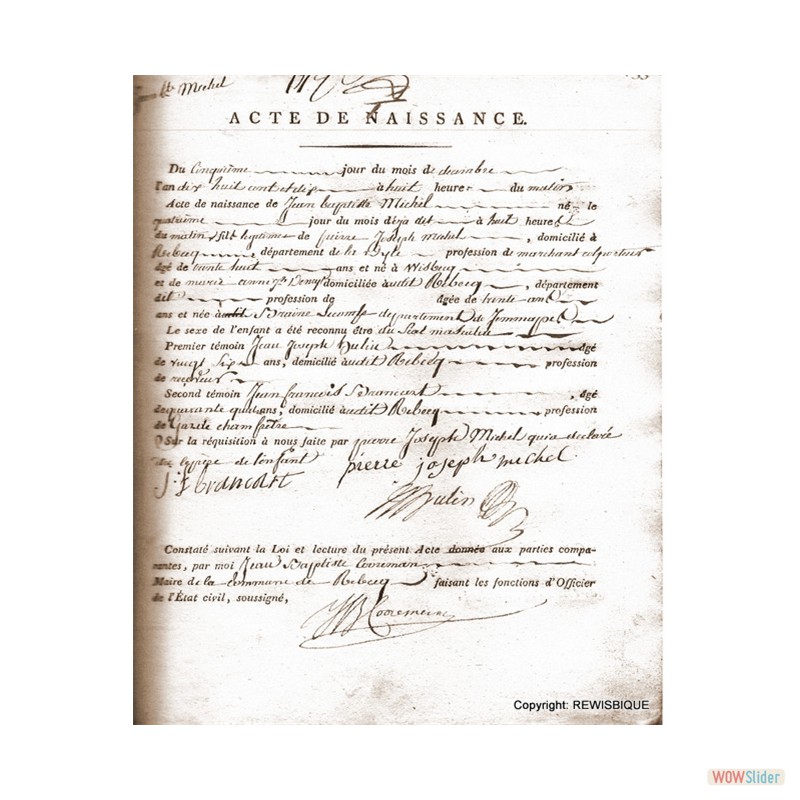 Bte Michel
ACTE DE NAISSANCE.
Du Cinquième jour du mois de decembre
l'an dix huit cent et dix à huit heures du matin
Acte de naissance de Jean Baptiste Michel né le
quatrième jour du mois deja dit à huit heures
du matin, fils legitime de pierre Joseph Michel, domicilié à
Rebecq, département de la Dyle profession de marchand colporteur
âgé de trente huit ans et né à Wisbecq
et de marie anne domiciliée audit Rebecq, département
dit profession de âgée de trente ans
ans et née à Braine Lecomte departement de Jemmappes
Le sexe de l'enfant a été reconnu être du Sexe masculin
Premier témoin Jean Joseph Hulin âgé
de vingt six ans, domicilié audit Rebecq profession
de receveur
Second témoin Jean francois Brancart, âgé
de quarante ans, domicilié audit Rebecq profession
de Garde champêtre
Sur la réquisition à nous faite par pierre Joseph Michel qui a declaré
être le père de l'enfant
pierre joseph michel
J: f Brancart
Hulin
Constaté suivant la Loi et lecture du présent Acte donnée aux parties compa-
rantes, par moi Jean Baptiste Cooreman
Maire de la commune de Rebecq faisant les fonctions d'Officier
de l'État civil, soussigné,
JB Cooreman
Copyright: REWISBIQUE
WOWSlider